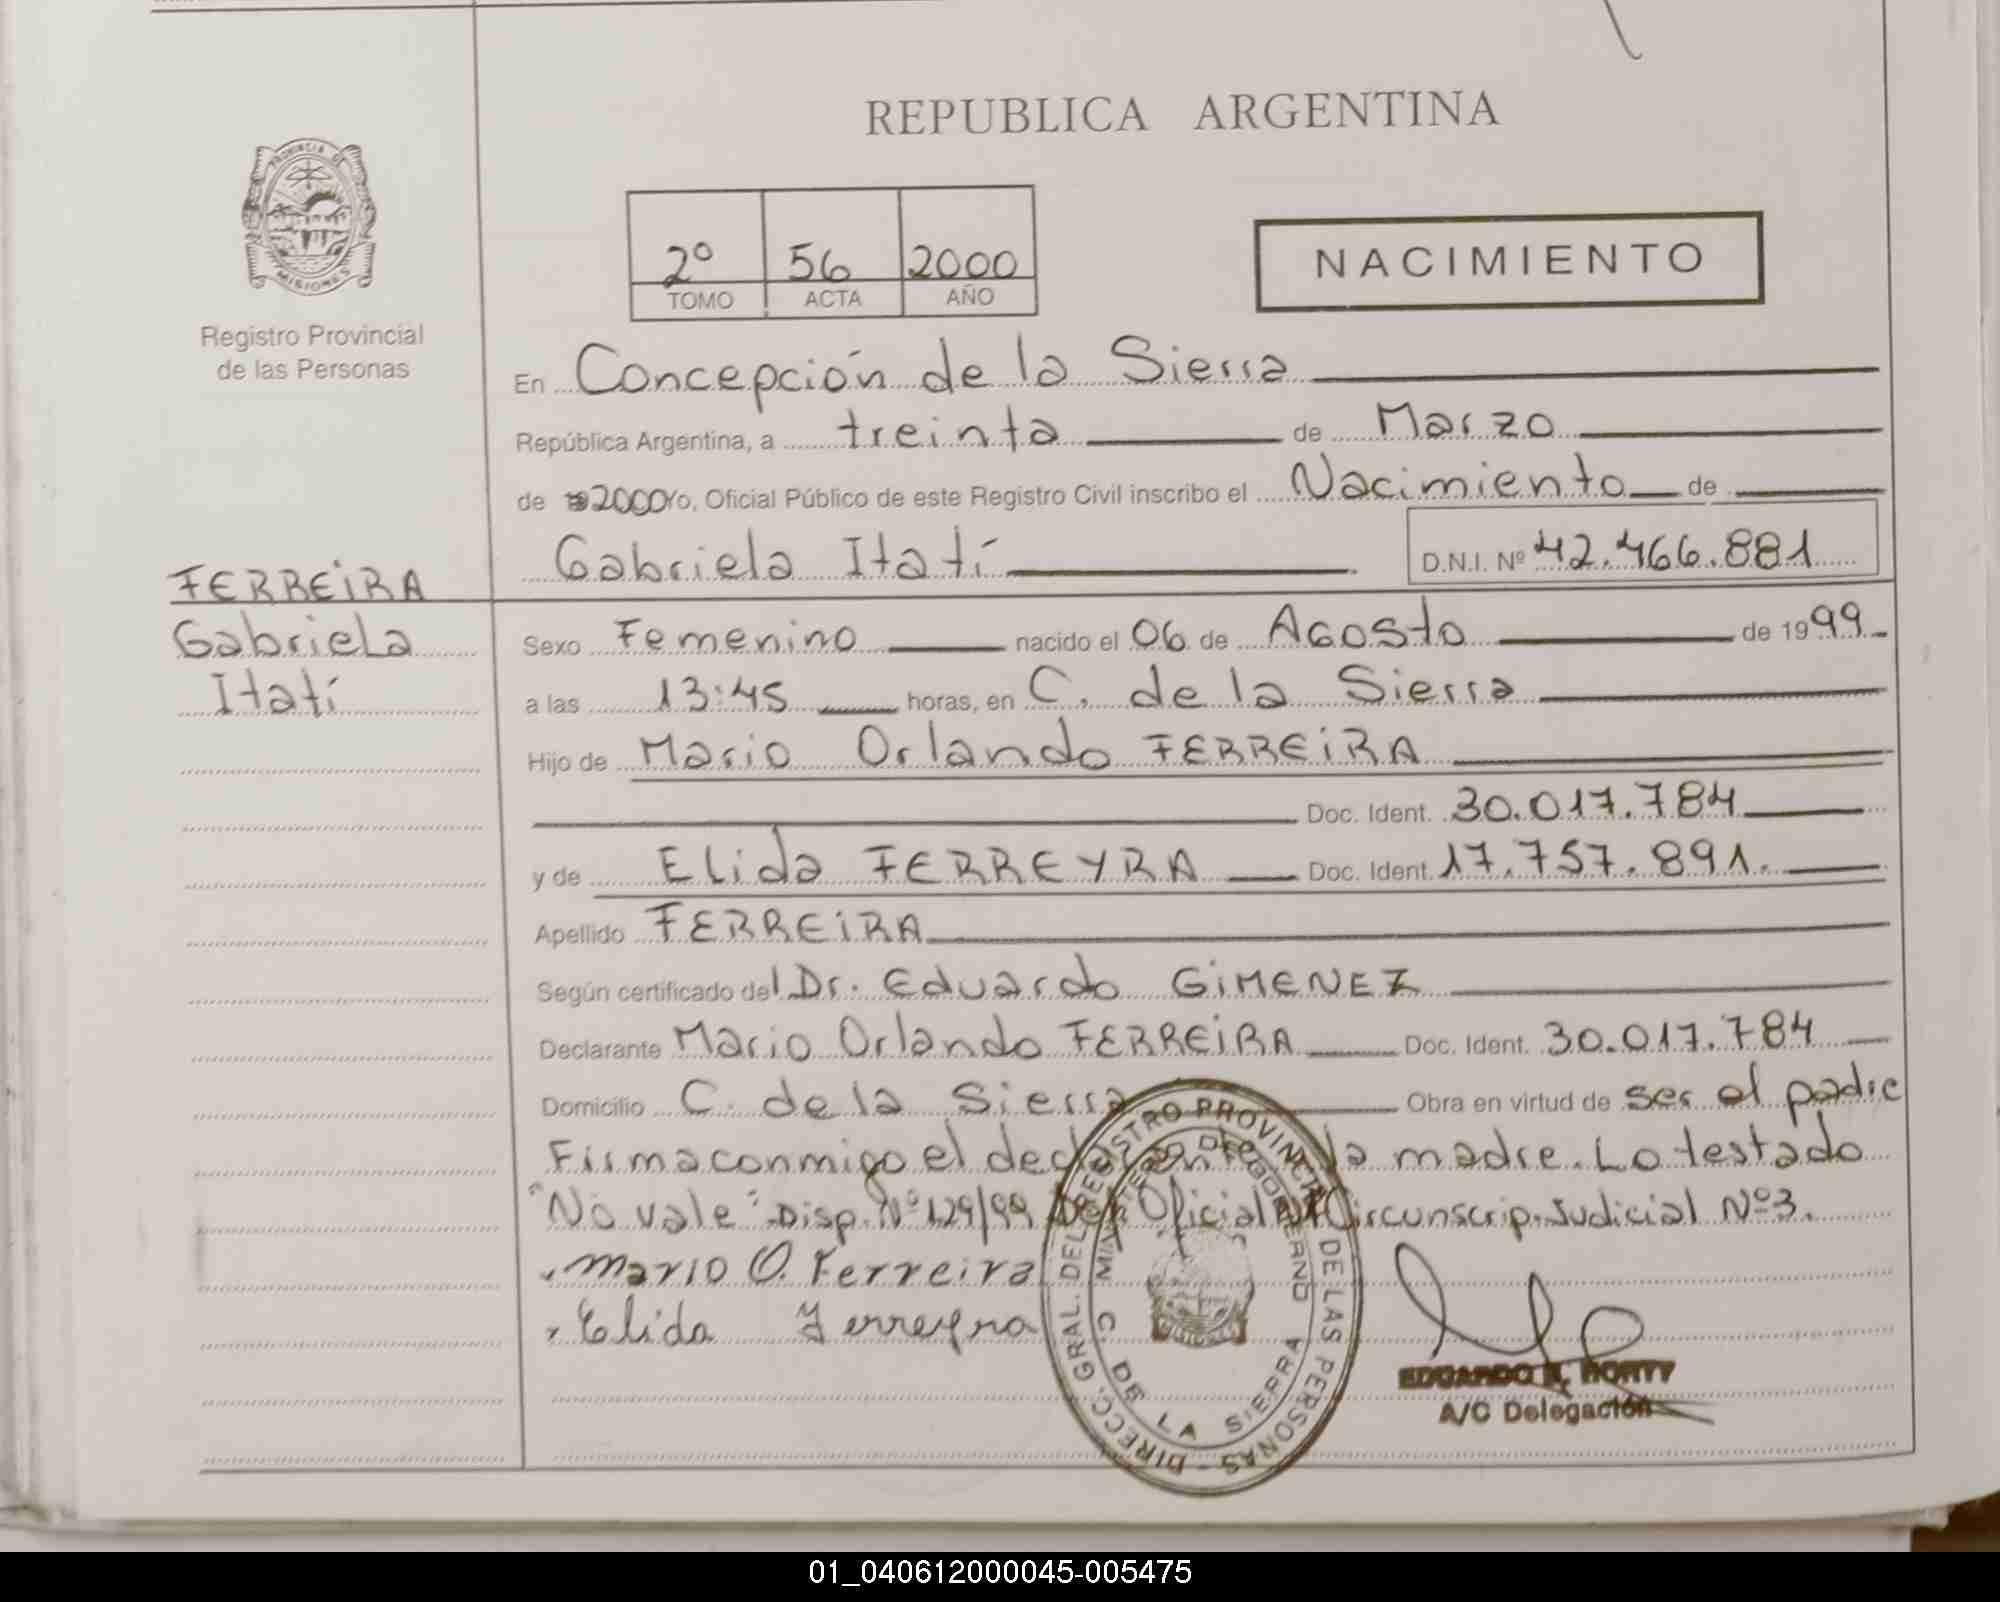 REPUBLICA ARGENTINA
PROVINCIA DE
MISIONES
Registro Provincial
de las Personas
2º 56 2000
TOMO ACTA AÑO
NACIMIENTO
En Concepción de la Sierra
República Argentina, a treinta de Marzo
de 2000 yo, Oficial Público de este Registro Civil inscribo el Nacimiento de
Gabriela Itatí D.N.I. Nº 42.466.881
FERREIRA
Gabriela
Itatí
Sexo Femenino nacido el 06 de Agosto de 1999
a las 13:45 horas, en C. de la Sierra
Hijo de Mario Orlando FERREIRA
Doc. Ident. 30.017.784
y de Elida FERREYRA Doc. Ident. 17.757.891.
Apellido FERREIRA
Según certificado del Dr. Eduardo GIMENEZ
Declarante Mario Orlando FERREIRA Doc. Ident. 30.017.784
Domicilio C. de la Sierra Obra en virtud de ser el padre
Firma conmigo el declarante la madre. Lo testado
"No vale". Disp. Nº 129/99 Oficial Circunscrip. Judicial Nº 3.
Mario O. Ferreira
Elida Ferreyra
DIRECC. GRAL. DEL REGISTRO PROVINCIAL DE LAS PERSONAS
MINISTERIO DE GOBIERNO
C. DE LA SIERRA
A/C Delegación
01_040612000045-005475